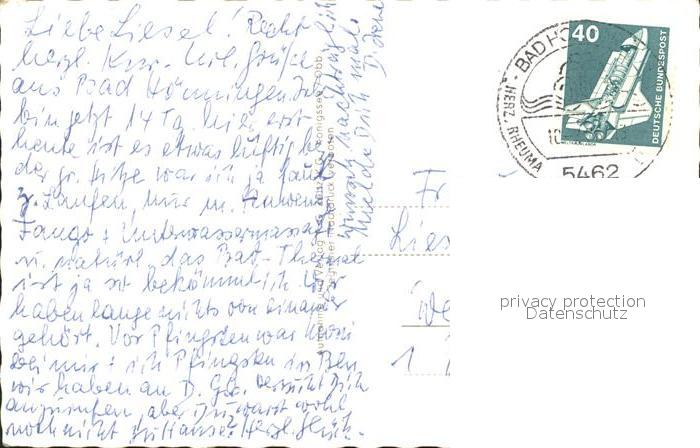 Liebe Liesel! Recht
herzl. Kur- Url. Grüße
aus Bad Hönningen. Ich
bin jetzt 14 Tg. hier, erst
heute ist es etwas luftig, bei
der gr. Hitze war ich ja faul
z. Laufen, nur m. Anwend.
Fango + Unterwassermassage
u. natürl. das Bad-Thermal
ist ja so bekömmlich. Wir
haben lange nichts von einander
gehört. Vor Pfingsten war
bei mir + ich Pfingsten in
wir haben an D. Gb. versucht Dich
anzurufen, aber Du warst wohl
noch nicht zu Hause? Herzl. Glück-
wunsch nachträglich
melde Dich mal
Fr
Lies
We
1
BAD HÖ
HERZ, RHEUMA
5462
40
DEUTSCHE BUNDESPOST
privacy protection
Datenschutz